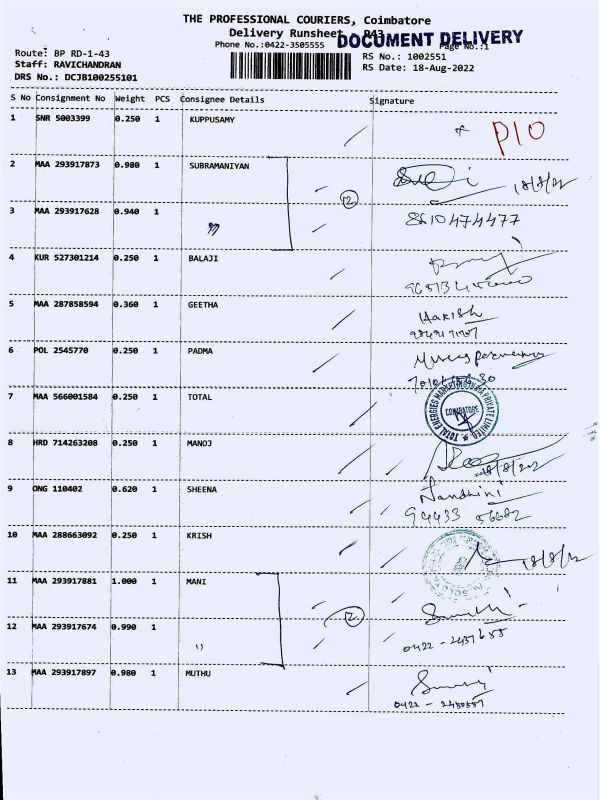 THE PROFESSIONAL COURIERS, Coimbatore
Delivery Runsheet R43
DOCUMENT DELIVERY
Phone No.:0422-3505555 Page No.:1
Route: BP RD-1-43 RS No.: 1002551
Staff: RAVICHANDRAN RS Date: 18-Aug-2022
DRS No.: DCJB100255101
S No Consignment No Weight PCS Consignee Details Signature
1 SNR 5003399 0.250 1 KUPPUSAMY P10
2 MAA 293917873 0.980 1 SUBRAMANIYAN 18/8/22
12
3 MAA 293917628 0.940 1 " 8610474477
4 KUR 527301214 0.250 1 BALAJI
5 MAA 287858594 0.360 1 GEETHA Harish
6 POL 2545770 0.250 1 PADMA
7 MAA 566001584 0.250 1 TOTAL
TOTAL ENERGIES MARKETING INDIA PRIVATE LIMITED
COIMBATORE
8 HRD 714263208 0.250 1 MANOJ 18/8/202
9 ONG 110402 0.620 1 SHEENA Nandhini
94433 56682
10 MAA 288663092 0.250 1 KRISH 18/8/22
11 MAA 293917881 1.000 1 MANI
2
12 MAA 293917674 0.990 1 " 0422 - 2437658
13 MAA 293917897 0.980 1 MUTHU